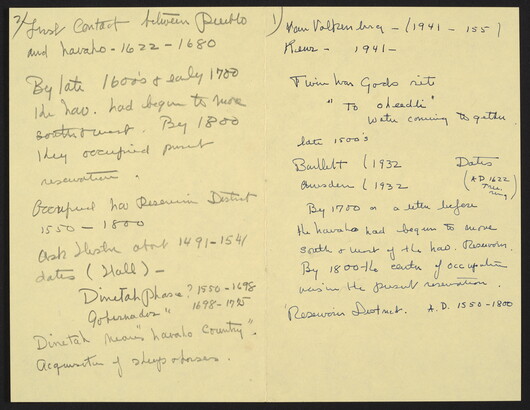 1) Van Valkenburg - (1941 - 155)
Keur - 1941 -
Twin War Gods rite
" To aheedli "
Water coming together
late 1500's
Bartlett (1932 Dates
(1932 (A.D. 1622 Tree ring)
By 1700 or a little before
the Navaho had begun to move
South & west of the Nav. Reservoir.
By 1800 the center of occupation
was in the present reservation.
Reservoir District. A.D. 1550-1800
2) First Contact between Pueblo
and Navaho - 1622 - 1680
By late 1600's & early 1700
the Nav. had begun to move
south & west. By 1800
they occupied present
reservation.
Occupied Nav Reservoir District
1550 - 1800
Ask about 1491-1541
dates (Hall) -
Dinetah phase? 1550-1698
Gobernador " 1698-1775
Dinetah means "Navaho Country".
Acquisition of sheep & horses.